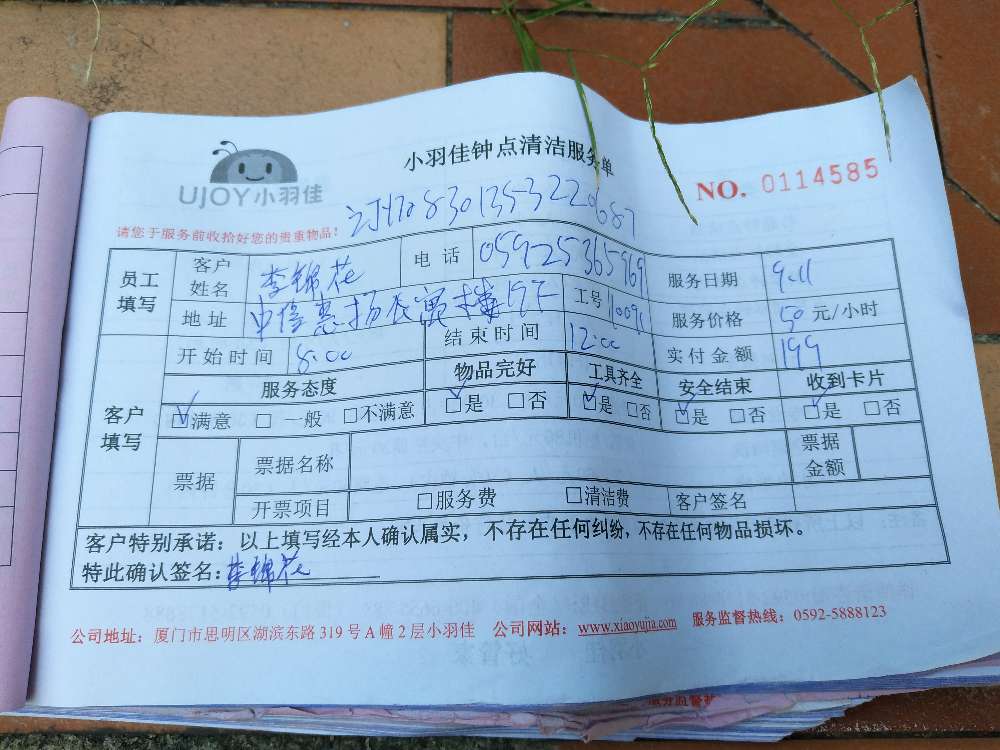 UJOY小羽佳
小羽佳钟点清洁服务单
NO. 0114585
请您于服务前收拾好您的贵重物品!
员工填写 客户姓名 李锦花 电话 服务日期 9.11
地址 工号 服务价格 50 元/小时
客户填写 开始时间 8:00 结束时间 12:00 实付金额 199
服务态度 物品完好 工具齐全 安全结束 收到卡片
☑满意 □一般 □不满意 ☑是 □否 ☑是 □否 ☑是 □否 ☑是 □否
票据 票据名称 票据金额
开票项目 □服务费 □清洁费 客户签名
客户特别承诺:以上填写经本人确认属实,不存在任何纠纷,不存在任何物品损坏。
特此确认签名:李锦花
公司地址:厦门市思明区湖滨东路319号A幢2层小羽佳 公司网站:www.xiaoyujia.com 服务监督热线:0592-5888123